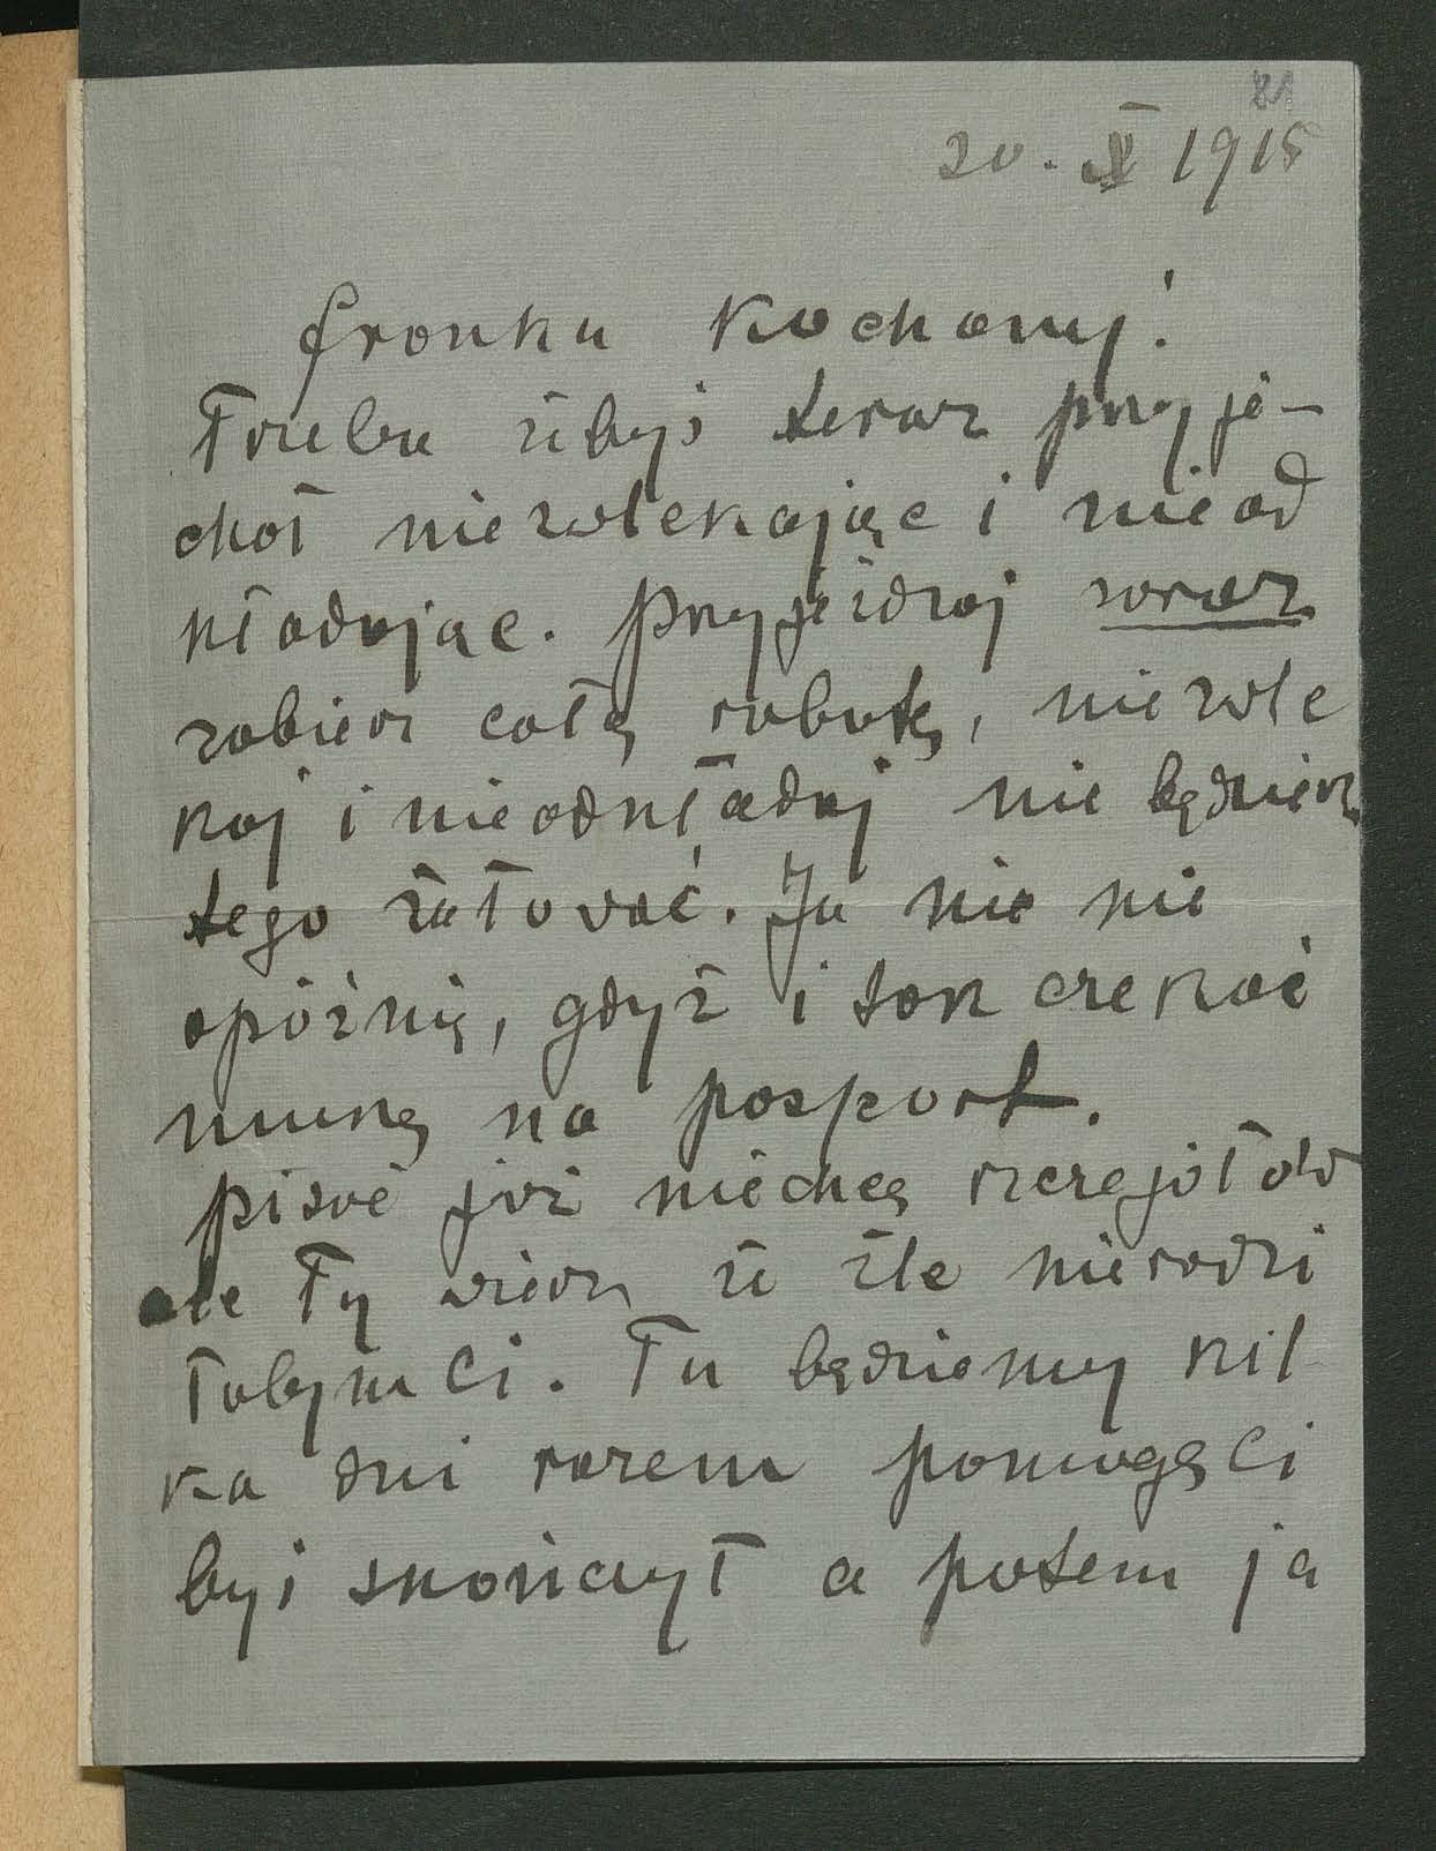 81
20. XI 1915
Franku Kochany!
Trzeba żebyś teraz przyje-
chał niezwlekając i nieod
kładając. Przyjeżdżaj zaraz
zabierz całą robotę, niezwle
kaj i nieodkładaj nie będziesz
tego żałować. Ja nic nie
opóźnię, gdyż i tak czekać
muszę na paszport.
Pisać już niechcę szczegółów
ale Ty wiesz że źle nieradzi
łabym Ci. Tu będziemy kil
ka dni razem pomogę Ci
byś skończył a potem ja